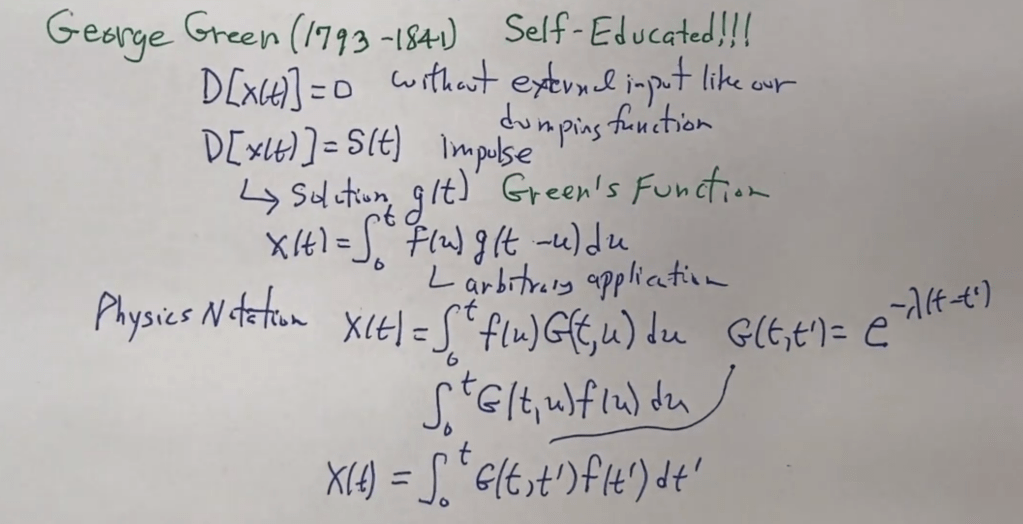 George Green (1793-1841) Self-Educated!!!
D[x(t)]=0 without external input like our
dumping function
D[x(t)]=δ(t) impulse
↳ Solution g(t) Green's Function
x(t)=∫₀ᵗ f(u)g(t-u)du
∟ arbitrary application
Physics Notation X(t)=∫₀ᵗ f(u)G(t,u)du G(t,t')=e^{-λ(t-t')}
∫₀ᵗ G(t,u)f(u)du
X(t)=∫₀ᵗ G(t,t')f(t')dt'